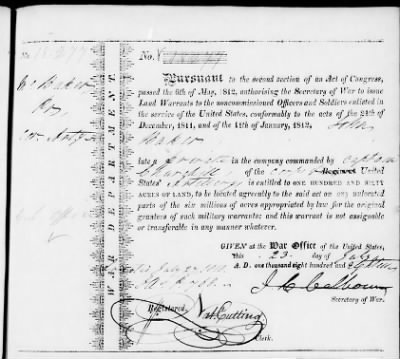 No.
Pursuant to the second section of an Act of Congress,
passed the 6th of May, 1812, authorising the Secretary of War to issue
Land Warrants to the noncommissioned Officers and Soldiers enlisted in
the service of the United States, conformably to the acts of the 24th of
December, 1811, and of the 11th of January, 1812, John
Baker
late a private in the company commanded by Captain
Churchill, of the corps of Regiment United
States' Artillery is entitled to ONE HUNDRED AND SIXTY
ACRES OF LAND, to be located agreeably to the said act on any unlocated
parts of the six millions of acres appropriated by law for the original
grantees of such military warrants; and this warrant is not assignable
or transferable in any manner whatever.
GIVEN at the War Office of the United States,
this 23 day of July
A. D. one thousand eight hundred and
J C Calhoun
Secretary of War.
Registered,
Nat Cutting
Clerk.
WAR DEPARTMENT.
Baker